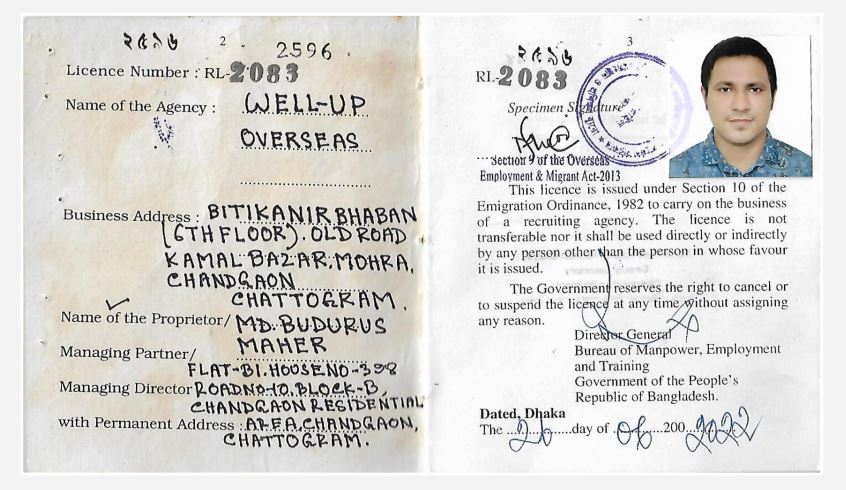 ২৫৯৬
2
2596
Licence Number : RL-2083
Name of the Agency : WELL-UP
OVERSEAS
Business Address : BITIKANIR BHABAN
(6TH FLOOR). OLD ROAD
KAMAL BAZAR, MOHRA,
CHANDGAON
CHATTOGRAM.
Name of the Proprietor/ MD. BUDURUS
MAHER
Managing Partner/
FLAT-B1. HOOSE NO-398
Managing Director ROAD NO-10. BLOCK-B,
CHANDGAON RESIDENTIAL
with Permanent Address : AREA, CHANDGAON,
CHATTOGRAM.
২৫৯৬
3
RL-2083
Specimen Signature
Section 9 of the Overseas
Employment & Migrant Act-2013
This licence is issued under Section 10 of the
Emigration Ordinance, 1982 to carry on the business
of a recruiting agency. The licence is not
transferable nor it shall be used directly or indirectly
by any person other than the person in whose favour
it is issued.
The Government reserves the right to cancel or
to suspend the licence at any time without assigning
any reason.
Director General
Bureau of Manpower, Employment
and Training
Government of the People's
Republic of Bangladesh.
Dated, Dhaka
The ..26..day of .06..200..2022